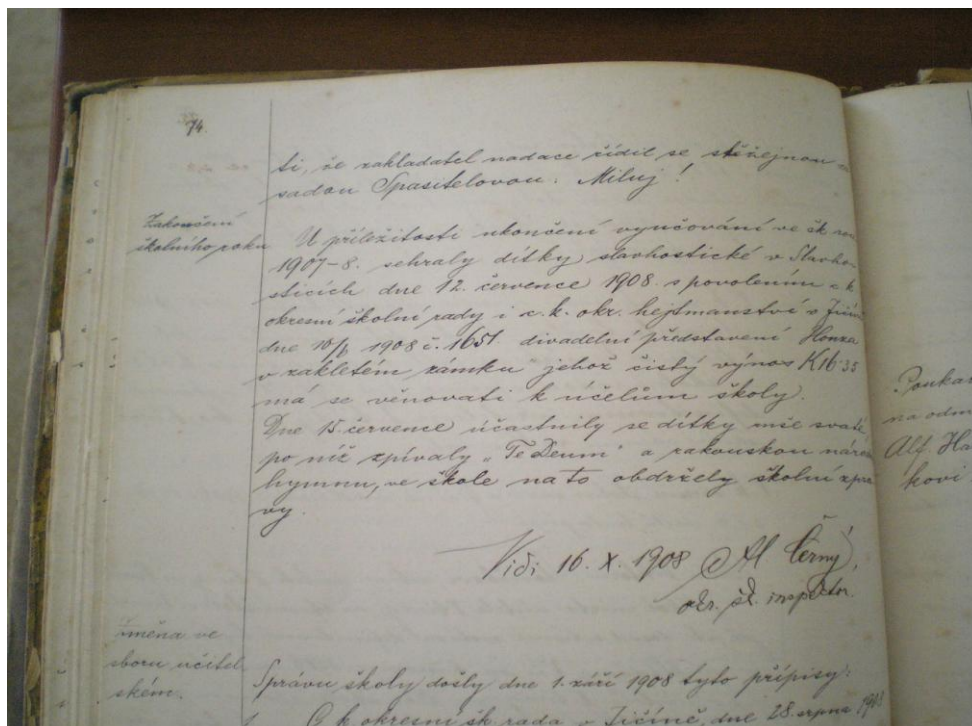 74.
ti, že zakladatel nadace řídil se stěžejnou
sadou Spasitelovou: Miluj!
Zakončení
školního roku
U příležitosti ukončení vyučování ve šk.
1907-8. sehrály dítky slavhostické v Slavho-
sticích dne 12. července 1908. s povolením c. k.
okresní školní rady i c. k. okr. hejtmanství v Jičíně
dne 10/ 1908 č. 1651. divadelní představení Honza
v zakletém zámku jehož čistý výnos K 16·35
má se věnovati k účelům školy.
Dne 15. července účastnily se dítky mše svaté
po níž zpívaly „Te Deum" a rakouskou
hymnu, ve škole na to obdržely školní zprá
vy.
Vidi 16. X. 1908 Al Černý,
okr. šk. inspektor.
Změna ve
sboru učitel
ském.
Správu školy došly dne 1. září 1908 tyto přípisy:
C. k. okresní šk. rada v Jičíně, dne 28. srpna 1908
Poukaz
na odm
Alf. Ha
kovi